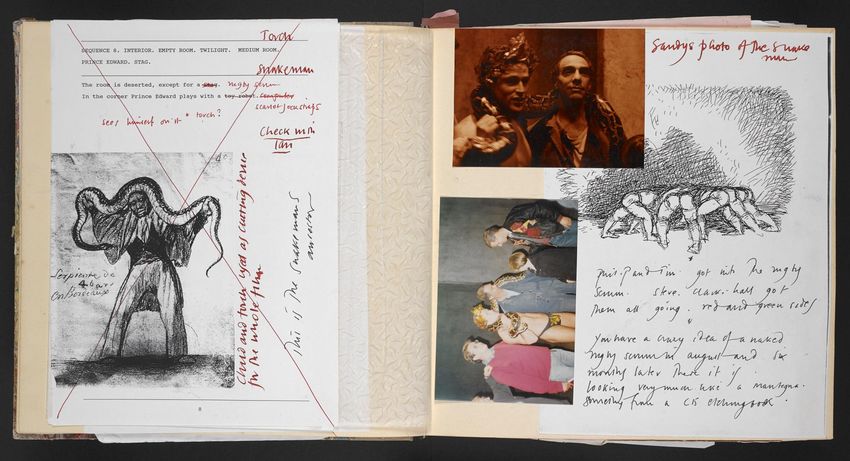 Torch
SEQUENCE 8. INTERIOR. EMPTY ROOM. TWILIGHT. MEDIUM ROOM.
PRINCE EDWARD. STAG.
Snakeman
The room is deserted, except for a stag. rugby scrum
In the corner Prince Edward plays with a toy robot.
sees himself on it * torch?
Check with
Ian
Child and torch used as cutting device
for the whole film
This is the Snakemans
ancestor
Serpiente de
4 bars
en Bordeaux
8
Sandys photo of the snake
man
phil. P and Tim. got into the rugby
scrum. Steve Clark-Hall got
them all going. red and green sides
You have a crazy idea of a naked
rugby scrum in august and six
months later there it is
looking very much like a mantegna.
something from a C15 etching book.